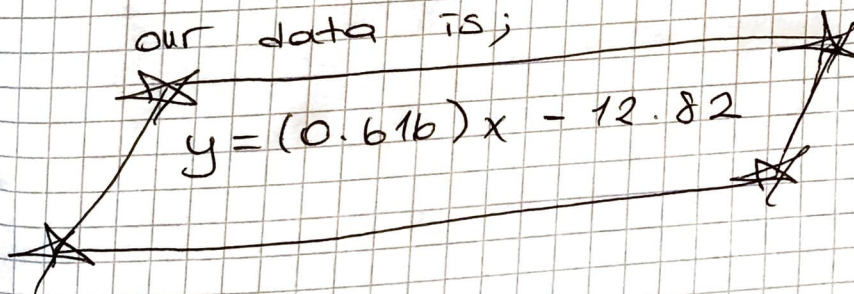 our data is;
y=(0.616)x - 12.82